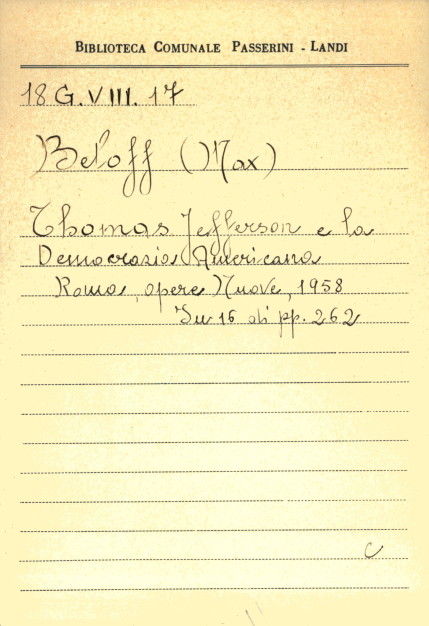 BIBLIOTECA COMUNALE PASSERINI - LANDI
18 G. VIII. 17
Beloff (Max)
Thomas Jefferson e la
Democrazia Americana
Roma, opere Nuove, 1958
In 16 di pp. 262
C